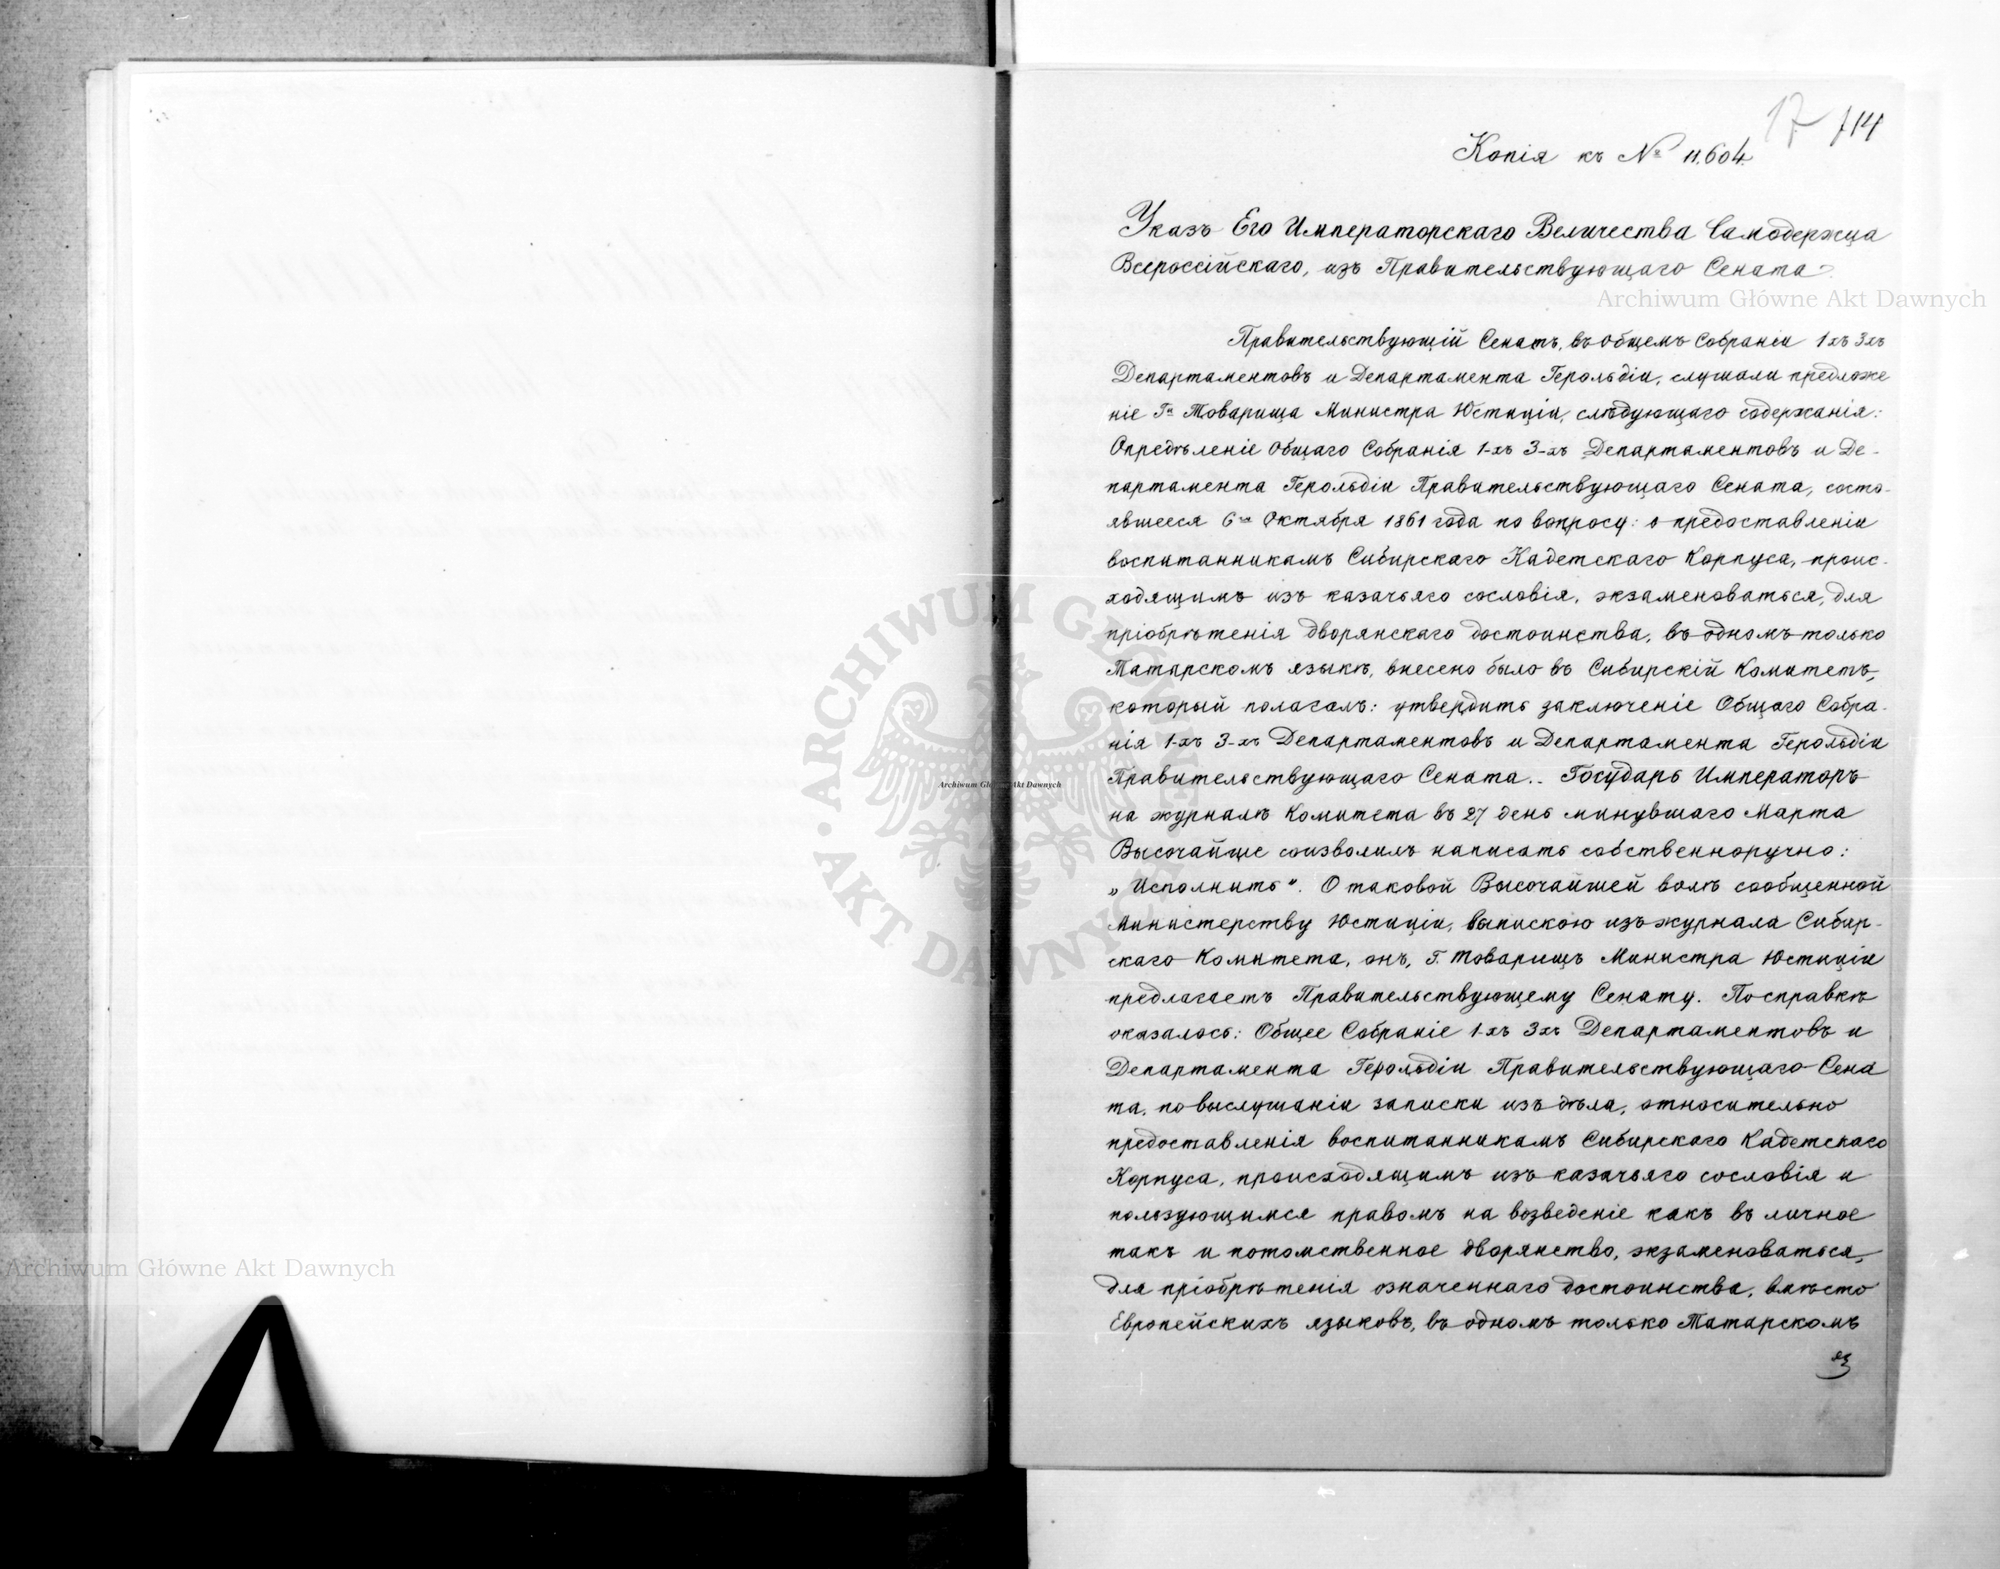 17 714
Копія къ № 11.604.
Указъ Его Императорскаго Величества Самодержца
Всероссійскаго, изъ Правительствующаго Сената.
Archiwum Główne Akt Dawnych
Правительствующій Сенатъ, въ Общемъ Собраніи 1хъ 3хъ
Департаментовъ и Департамента Герольдіи, слушали предложе
ніе Гна Товарища Министра Юстиціи, слѣдующаго содержанія:
Опредѣленіе Общаго Собранія 1-хъ 3-хъ Департаментовъ и Де-
партамента Герольдіи Правительствующаго Сената, состо-
явшееся 6го Октября 1861 года по вопросу: о предоставленіи
воспитанникамъ Сибирскаго Кадетскаго Корпуса, проис-
ходящимъ изъ казачьяго сословія, экзаменоваться, для
пріобрѣтенія дворянскаго достоинства, въ одномъ только
Татарскомъ языкѣ, внесено было въ Сибирскій Комитетъ,
который полагалъ: утвердить заключеніе Общаго Собра-
нія 1-хъ 3-хъ Департаментовъ и Департамента Герольдіи
Правительствующаго Сената.. Государь Императоръ
на журналѣ Комитета въ 27 день минувшаго Марта
Высочайше соизволилъ написать собственноручно:
„Исполнить“. О таковой Высочайшей волѣ сообщенной
Министерству Юстиціи, выпискою изъ журнала Сибир-
скаго Комитета, онъ, Г. Товарищъ Министра Юстиціи
предлагаетъ Правительствующему Сенату. По справкѣ
оказалось: Общее Собраніе 1-хъ 3хъ Департаментовъ и
Департамента Герольдіи Правительствующаго Сена
та, по выслушаніи записки изъ дѣла, относительно
предоставленія воспитанникамъ Сибирскаго Кадетскаго
Корпуса, происходящимъ изъ казачьяго сословія и
пользующимся правомъ на возведеніе какъ въ личное
такъ и потомственное дворянство, экзаменоваться,
для пріобрѣтенія означеннаго достоинства, вмѣсто
Европейскихъ языковъ, въ одномъ только Татарскомъ
яз
ARCHIWUM GŁÓWNE AKT DAWNYCH
Archiwum Główne Akt Dawnych
Archiwum Główne Akt Dawnych